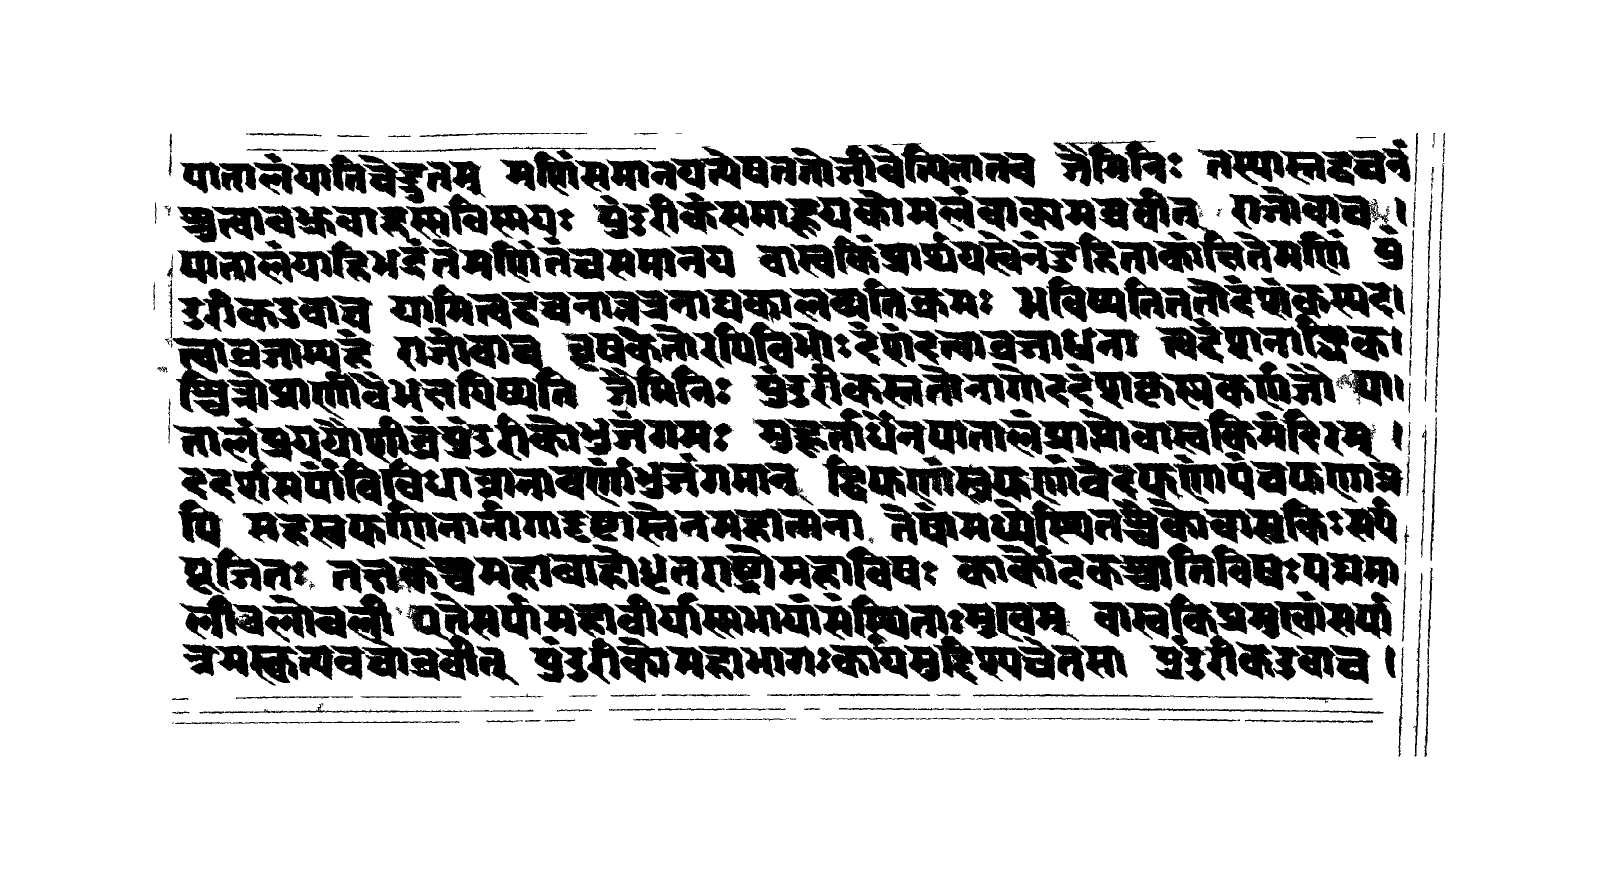 पातालंयातिचेद्द्रुतम् मणिंसमानयत्येषततोजीवेत्पितातव जैमिनिः तस्यास्तद्वचनं
श्रुत्वावभ्रुवाहस्सविस्मयः पुंडरीकंसमाहूयकोमलंवाक्यमब्रवीत् राजोवाच ।
पातालंयाहिभद्रंतेमणिंतंचसमानय वासुकिंप्रार्थयस्वैनंदुहिताकांक्षितेमणिं पुं
डरीकउवाच यामित्वद्वचनात्तत्रनाद्यकालव्यतिक्रमः भविष्यतिततोदंशंकस्यद।
त्वाव्रजाम्यहं राजोवाच वृषकेतोरपिविभोःदंशंदत्वाव्रजाधुना त्वदंशनाद्धिक।
श्चित्रोप्राणीवैभक्षयिष्यति जैमिनिः पुंडरीकस्ततोनागोददंशाकृस्यकर्णजौ पा।
तालंप्रययौशीघ्रंपुंडरीकोभुजंगमः मुहूर्तार्धेनपातालंप्राप्तोवासुकिमंदिरम् ।
ददर्शसर्पांविविधान्नानावर्णांभुजंगमान् द्विफणांस्त्रुफणांवेदफणांपंचफणान
पि सहस्रफणिनानागादृष्टास्तेनमहात्मना तेषांमध्येस्थितश्चैकोवासुकिःसर्प
पूजितः तक्षकश्चमहाबाहोधृतराष्ट्रोमहाविषः कार्कोटकश्चातिविषःपद्ममा
लीबलोबली एतेसर्पामहावीर्यास्सभायांसंस्थिताःमुखम् वासुकिप्रमुखांसर्पा
न्नमस्कृत्यवचोब्रवीत् पुंडरीकोमहाभागःकार्यमुद्दिश्यचेतसा पुंडरीकउवाच ।